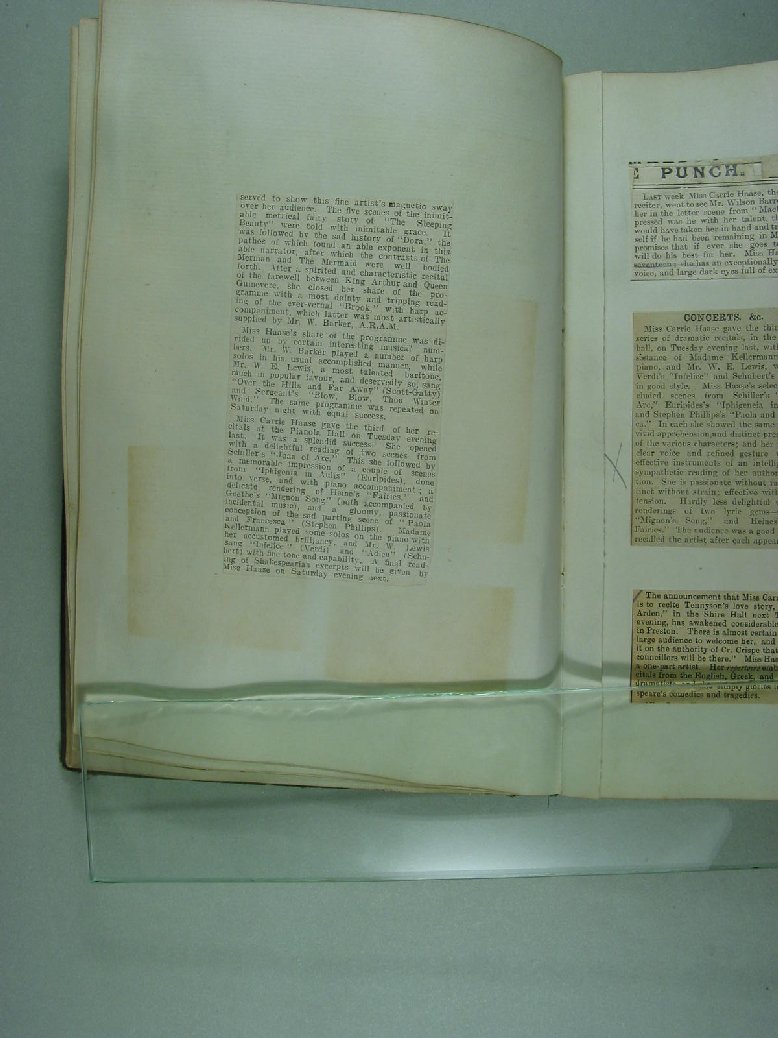 served to show this fine artist's magnetic sway
over her audience. The five scenes of the inimit-
able metrical fairy story of "The Sleeping
Beauty" were told with inimitable grace. It
was followed by the sad history of "Dora," the
pathos of which found an able exponent in this
able narrator, after which the contrasts of The
Merman and The Mermaid were well bodied
forth. After a spirited and characteristic recital
of the farewell between King Arthur and Queen
Guinevere, she closed her share of the pro-
gramme with a most dainty and tripping read-
ing of the ever-vernal "Brook," with harp ac-
companiment, which latter was most artistically
supplied by Mr. W. Barker, A.R.A.M.
Miss Haase's share of the programme was di-
vided up by certain interesting musical num-
bers. Mr. W. Barker played a number of harp
solos in his usual accomplished manner, while
Mr. W. E. Lewis, a most talented baritone,
much in popular favour, and deservedly so, sang
"Over the Hills and Far Away" (Scott-Gatty)
and Sergeant's "Blow, Blow, Thou Winter
Wind." The same programme was repeated on
Saturday night with equal success.
Miss Carrie Haase gave the third of her re-
citals at the Pianola Hall on Tuesday evening
last. It was a splendid success. She opened
with a delightful reading of two scenes from
Schiller's "Joan of Arc." This she followed by
a memorable impression of a couple of scenes
from "Iphigenia in Aulis" (Euripides), done
into verse, and with piano accompaniment; a
delicate rendering of Heine's "Fairies," and
Goethe's "Mignon Song" (both accompanied by
incidental music), and a gloomy, passionate
conception of the sad parting scene of "Paola
and Francesca" (Stephen Phillips). Madame
Kellermann played some solos on the piano with
her accustomed brilliancy, and Mr. W. Lewis
sang "Infelice" (Verdi) and "Adieu" (Schu-
bert) with fine tone and capability. A final read-
ing of Shakespearian excerpts will be given by
Miss Haase on Saturday evening next.
PUNCH.
LAST week Miss Carrie Haase, the
reciter, went to see Mr. Wilson Barre
her in the letter scene from "Mac
pressed was he with her talent,
would have taken her in hand and tr
self if he had been remaining in M
promises that if ever she goes t
will do his best for her. Miss Ha
seventeen; she has an exceptionally
voice, and large dark eyes full of ex
CONCERTS, &c.
Miss Carrie Haase gave the thir
series of dramatic recitals, in the
hall, on Tuesday evening last, with
sistance of Madame Kellermann
piano, and Mr. W. E. Lewis, w
Verdi's "Infelice" and Schubert's
in good style. Miss Haase's selec
cluded scenes from Schiller's
Arc," Euripides's "Iphigeneia in
and Stephen Phillips's "Paola and
ca." In each she showed the same
vivid apprehension and distinct pres
of the various characters; and her
clear voice and refined gesture
effective instruments of an intelli
sympathetic reading of her author
tion. She is passionate without ra
tinct without strain; effective with
tension. Hardly less delightful
renderings of two lyric gems
"Mignon's Song," and Heine
Fairies." The audience was a good
recalled the artist after each appea
The announcement that Miss Carr
is to recite Tennyson's love story,
Arden," in the Shire Hall next T
evening, has awakened considerable
in Preston. There is almost certain
large audience to welcome her, and
it on the authority of Cr. Crispe that
councillors will be there." Miss Haa
a one-part artist. Her repertoire emb
citals from the English, Greek, and
dramatists, and she simply glories in
speare's comedies and tragedies.